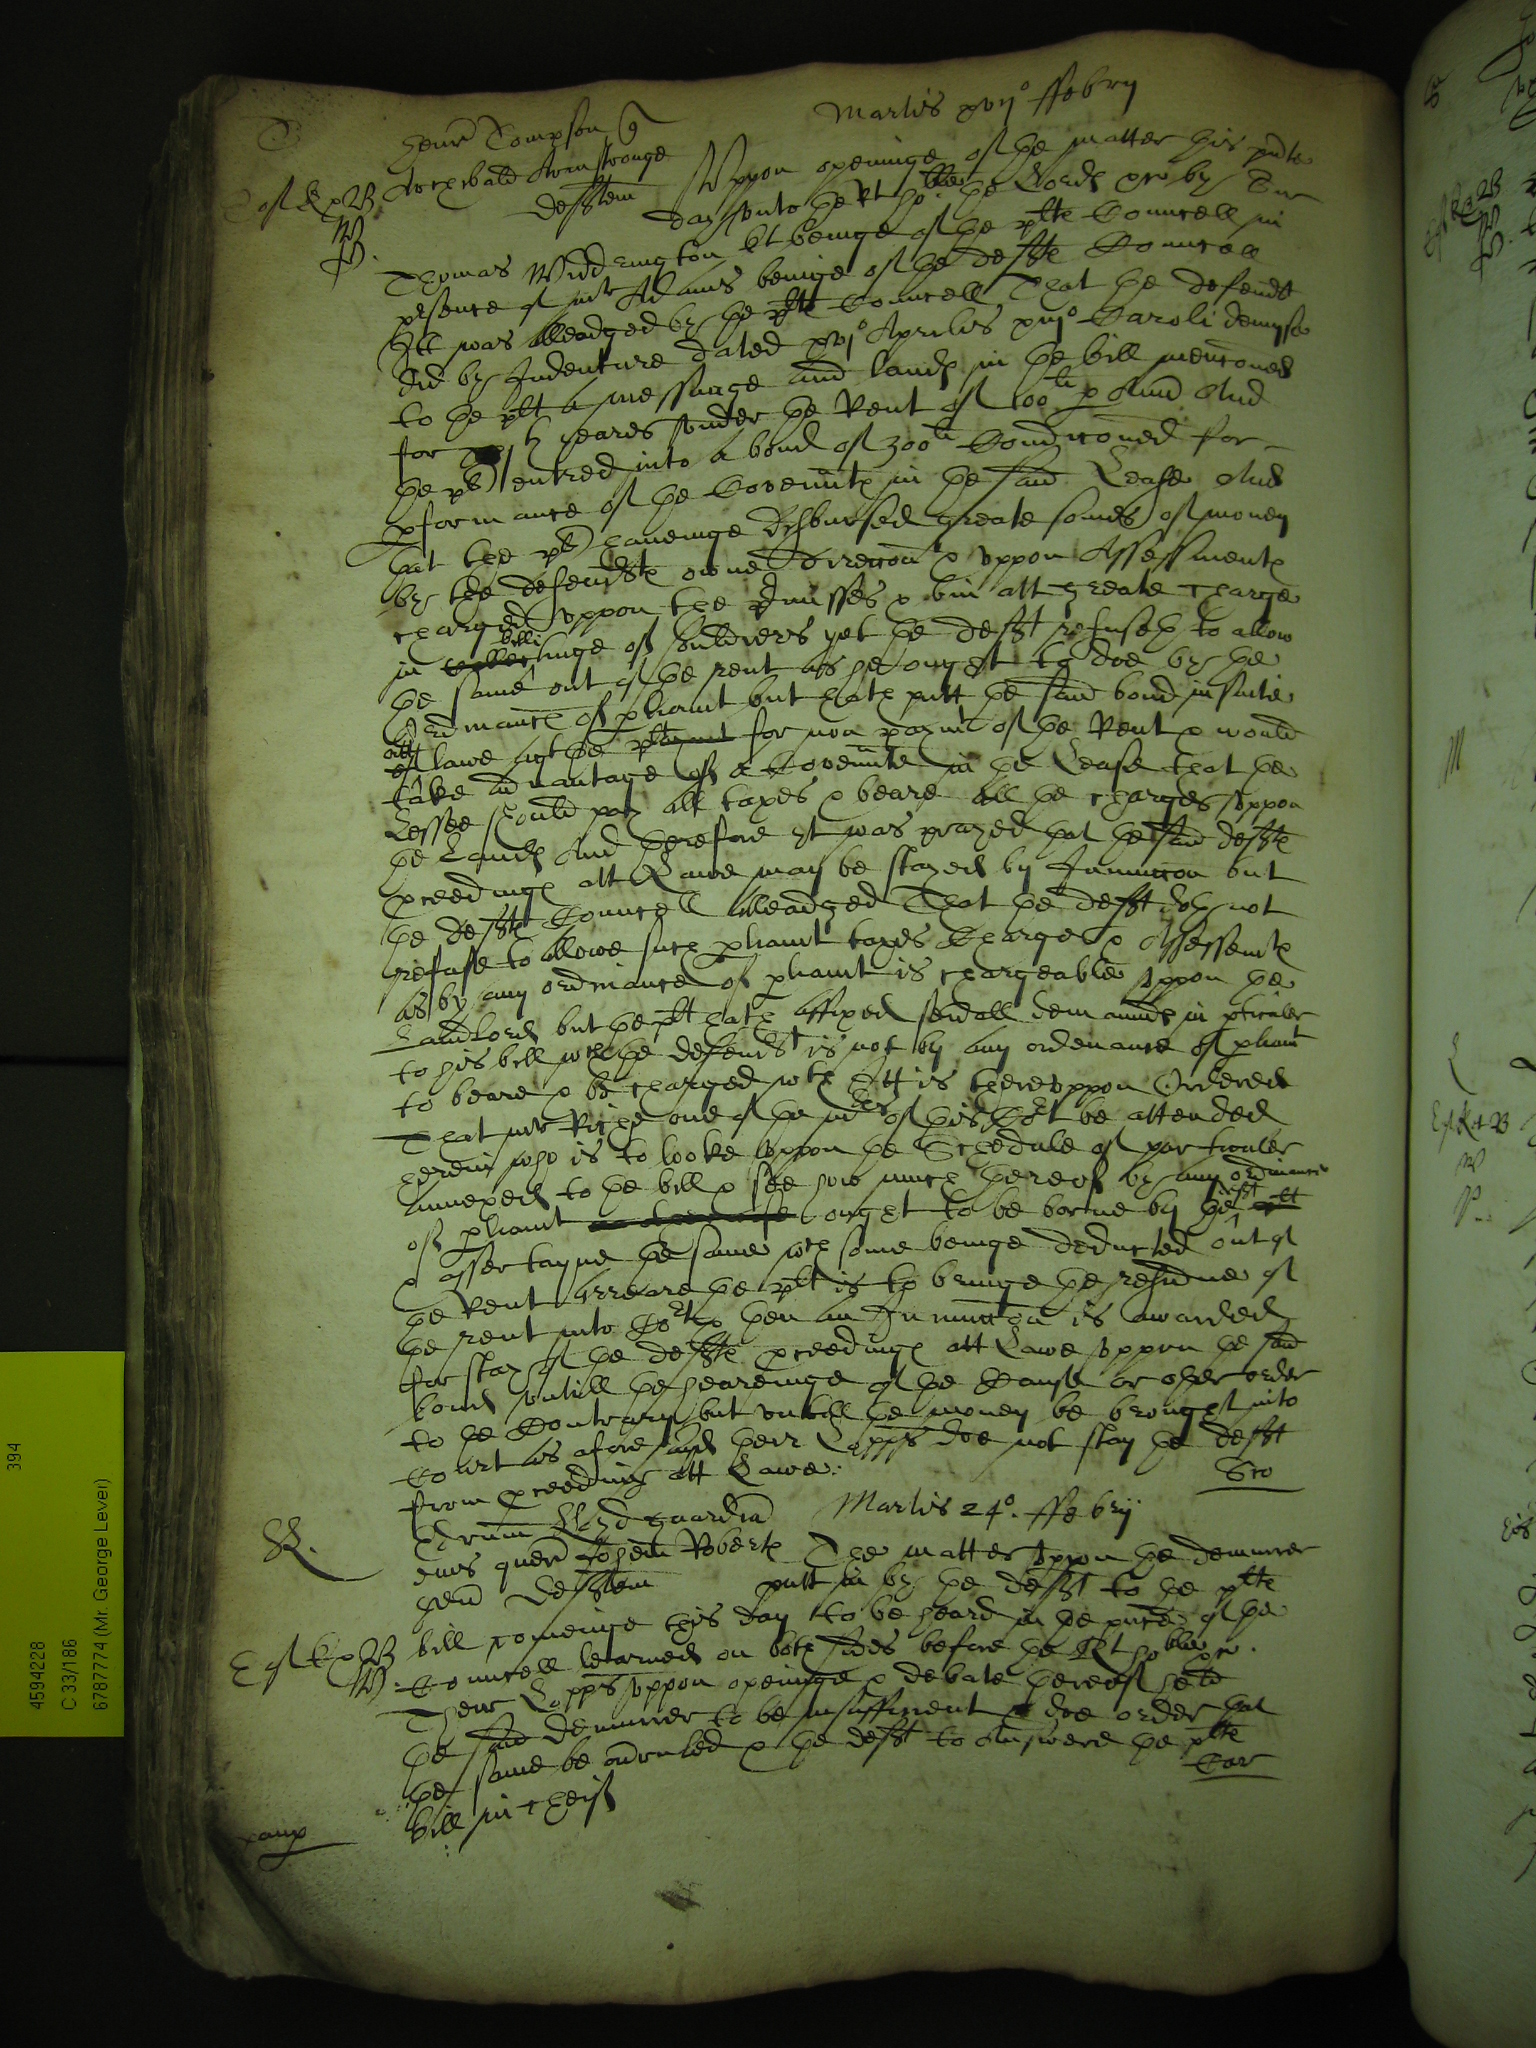 Martis xvij° ffebrij
Henr Tompson q
Archibald Armstronge
defftem
E of K & B
W
P.
Uppon openinge of the matter this pnte
day unto the Rt ho:ble the Lords &c by Sr
Thomas Widdrington kt beinge of the plts Councell in
psence of mr Adams beinge of the deffts Councell
Itt was alleadged by the plts Councell That the defendt
did by Indenture dated xvj° Aprilis xvij° Caroli demyse
to the plt a messuage and lands in the bill mencōned
for yeares under the Rent of 100li p Annū And
the plt entred into a bond of 300li Condicōned for
pformance of the Covennts in the said Lease And
that the plt haveinge disbursed greate somes of money
by the defendts owne direccōn & uppon Assessments
charged uppon the pmisses & bin att greate charge
in billinge of souldiers yet the defft refuseth to allow
the same out of the rent as he ought to doe by the
Ordinance of pliamt but hath putt the said bond in suite
att lawe agt the plt for non paymt of the Rent & would
take advantage of a Covennte in the Lease that the
Lessee should pay all taxes & beare all the charges uppon
the Lands And therefore it was prayed that the said deffts
pceedings att Lawe may be stayed by Iniunccōn but
the deffts Councell alleadged That the defft doth not
refuse to allowe such pliamt taxes Charges & Assessemts
as by any ordinance of pliamt is chargeable uppon the
Landlord but the plt hath affixed sevall demaunds in pticuler
to his bill wch the defendt is not by any ordenance of pliamt
to beare & be charged wth Itt is thereuppon Ordered
That mr Riche one of the mrs of this Cort be attended
herein who is to looke uppon the Schedule of particuler
annexed to the bill & see how much thereof by any ordinance
of pliamt ought to be borne by the defft
& assertayne the same wch some beinge deducted out of
the Rent arreare the plt is to bringe the residue of
the rent into Cort & then an Iniunccōn is awarded
for stay of the deffts pceedings att Lawe uppon the said
bond untill the heareinge of the Cause or other order
to the Contrary but untill the money be brought into
Court as aforesayd their Lopps doe not stay the defft
from pceeding att Lawe.
Sco
Martis 24°. ffebrij
R.
Edrum Lloyd guardia
quer Johem Roberts
gen defftem
E of K & B
W.
The matter uppon the demurrer
putt in by the defft to the plts
bill comeinge this day to be heard in the pnce of the
Councell learned on both sides before the Rt ho:ble &c.
Their Lopps uppon openinge & debate thereof held
the said demurrer to be insufficient & doe order that
the same be ovruled & the defft to Answere the plts
bill in cheif
Car
394
4594228
C 33/186
6787774 (Mr. George Lever)